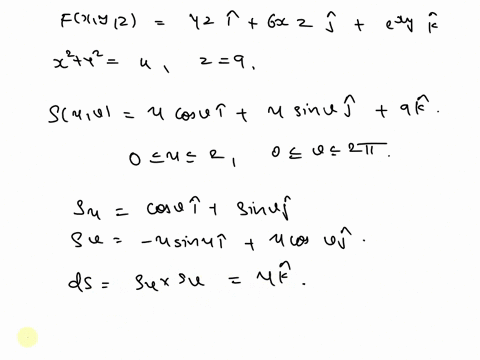 F(x,y,z) = yz î + 6xz ĵ + e^{xy} k̂
x²+y² = 4, z=9,
S(u,v) = u cosv î + u sinv ĵ + 9 k̂.
0 ≤ u ≤ 2, 0 ≤ v ≤ 2π.
Su = cosv î + sinv ĵ
Sv = -u sinu î + u cos v ĵ.
ds = Su × Su = u k̂.